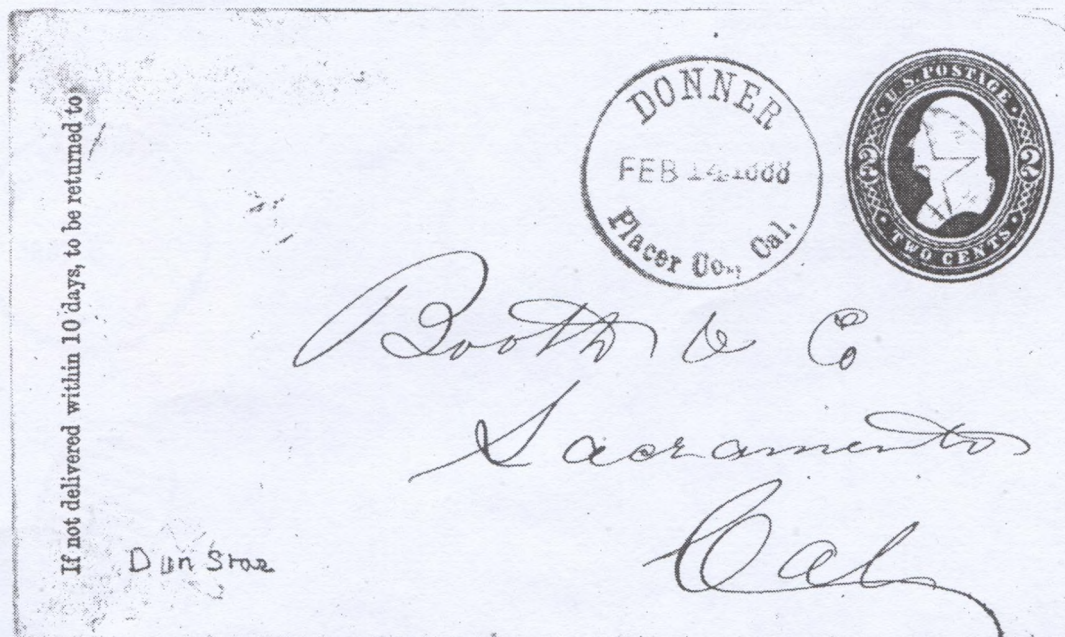 If not delivered within 10 days, to be returned to
DONNER
FEB 14 1888
Placer Co., Cal.
U.S. POSTAGE
2 2
TWO CENTS
Booth & Co
Sacramento
Cal